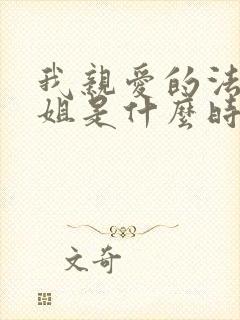 我親愛的法
姐是什麼時
文奇